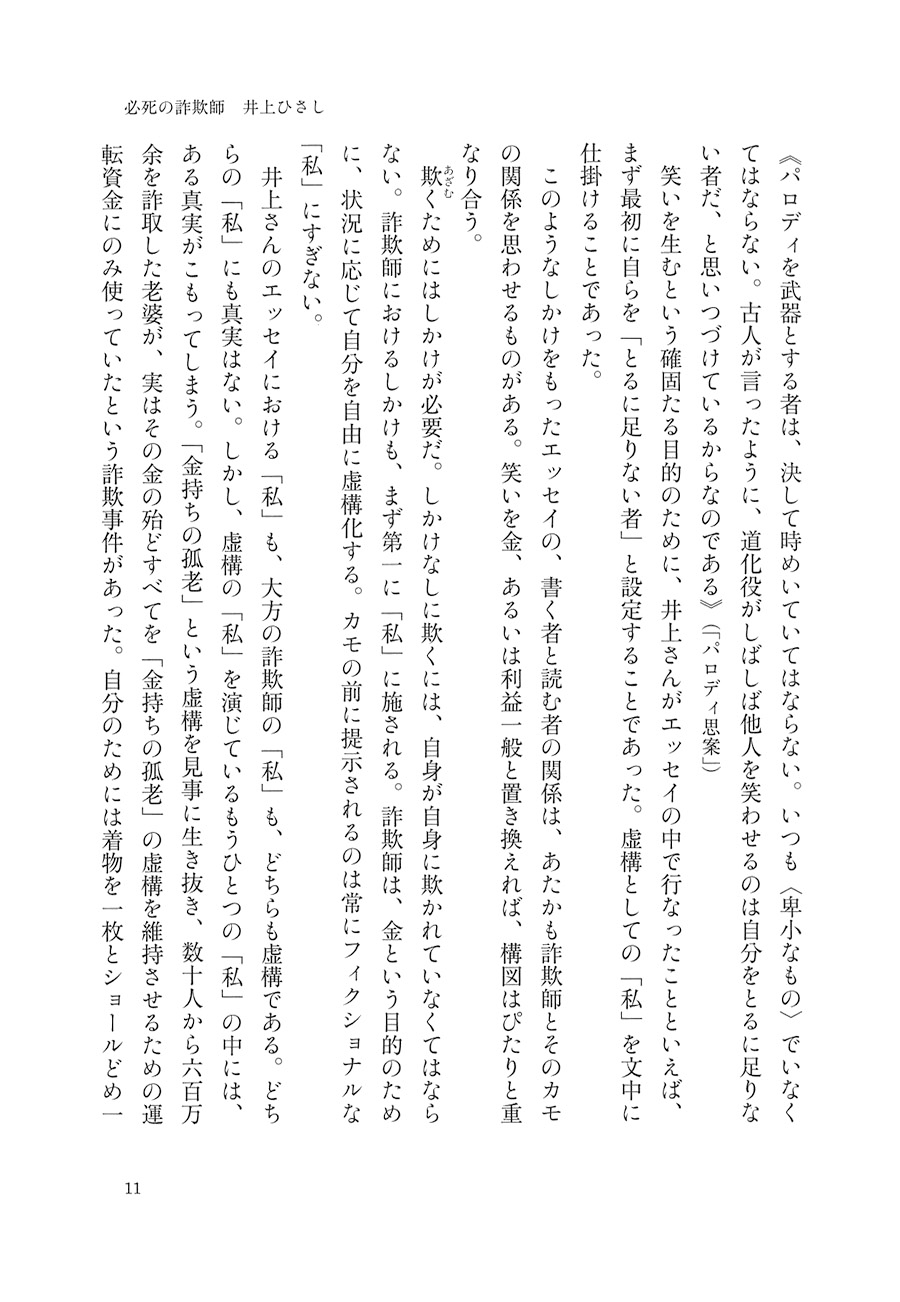 必死の詐欺師　井上ひさし
《パロディを武器とする者は、決して時めいていてはならない。いつも〈卑小なもの〉でいなく
てはならない。古人が言ったように、道化役がしばしば他人を笑わせるのは自分をとるに足りな
い者だ、と思いつづけているからなのである》（「パロディ思案」）
　笑いを生むという確固たる目的のために、井上さんがエッセイの中で行なったことといえば、
まず最初に自らを「とるに足りない者」と設定することであった。虚構としての「私」を文中に
仕掛けることであった。
　このようなしかけをもったエッセイの、書く者と読む者の関係は、あたかも詐欺師とそのカモ
の関係を思わせるものがある。笑いを金、あるいは利益一般と置き換えれば、構図はぴたりと重
なり合う。
　欺くためにはしかけが必要だ。しかけなしに欺くには、自身が自身に欺かれていなくてはなら
あざむ
ない。詐欺師におけるしかけも、まず第一に「私」に施される。詐欺師は、金という目的のため
に、状況に応じて自分を自由に虚構化する。カモの前に提示されるのは常にフィクショナルな
「私」にすぎない。
　井上さんのエッセイにおける「私」も、大方の詐欺師の「私」も、どちらも虚構である。どち
らの「私」にも真実はない。しかし、虚構の「私」を演じているもうひとつの「私」の中には、
ある真実がこもってしまう。「金持ちの孤老」という虚構を見事に生き抜き、数十人から六百万
余を詐取した老婆が、実はその金の殆どすべてを「金持ちの孤老」の虚構を維持させるための運
転資金にのみ使っていたという詐欺事件があった。自分のためには着物を一枚とショールどめ一
11